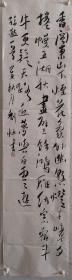 香閣東山下煙花象外幽懸燈千嶂夕
捲幔五湖秋畫壁餘鴻雁紗窗宿斗
牛更疑天路近夢與白雲遊